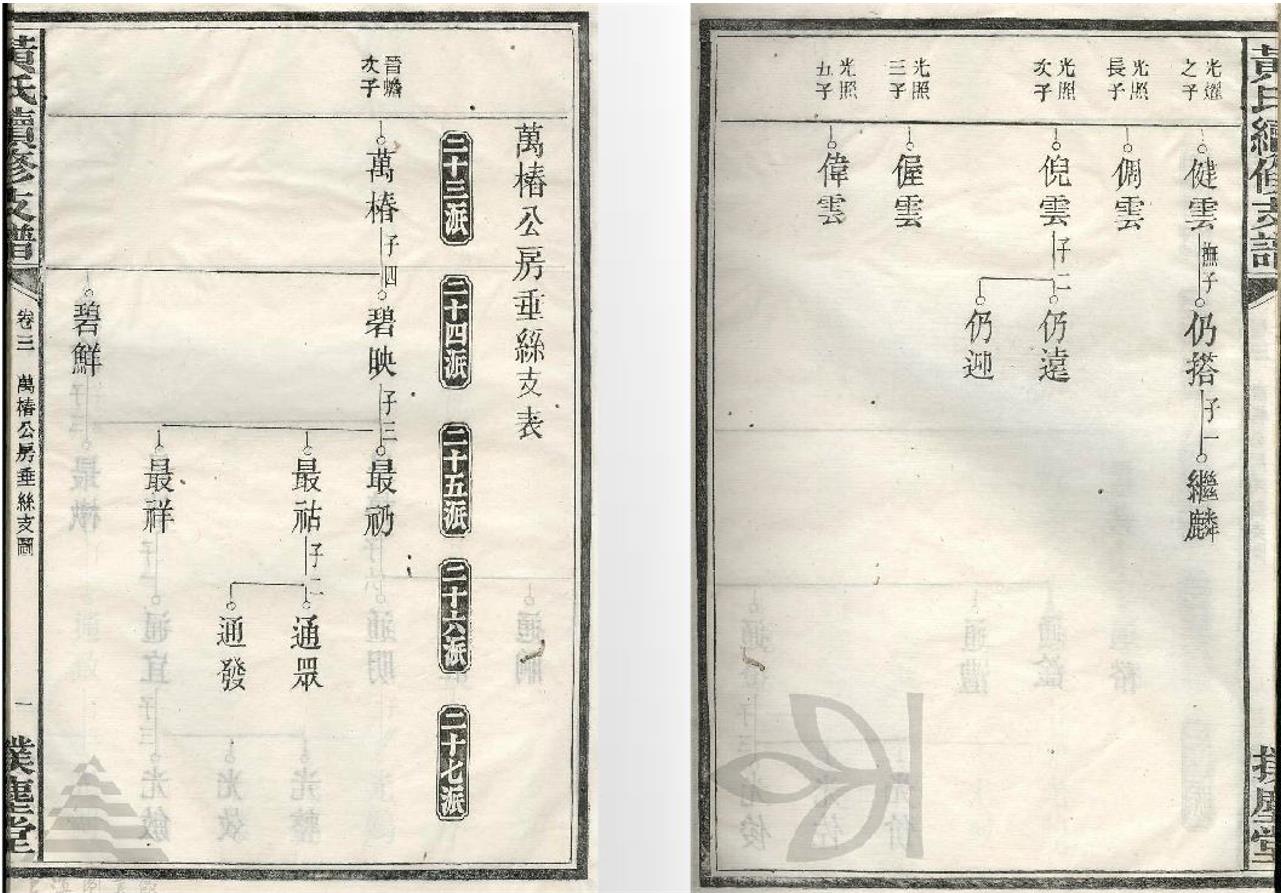 光燿
之子
健雲
撫子
仍搭
子一
繼麟
光照
長子
倜雲
光照
次子
倪雲
子二
仍遠
仍迎
光照
三子
偓雲
光照
五子
偉雲
萬椿公房垂絲支表
二十三派
二十四派
二十五派
二十六派
二十七派
晉蟾
次子
萬椿
子四
碧映
子三
最礽
最祜
子二
通眾
通發
最祥
碧鮮
黃氏續修支譜
卷三 萬椿公房垂絲支圖
一